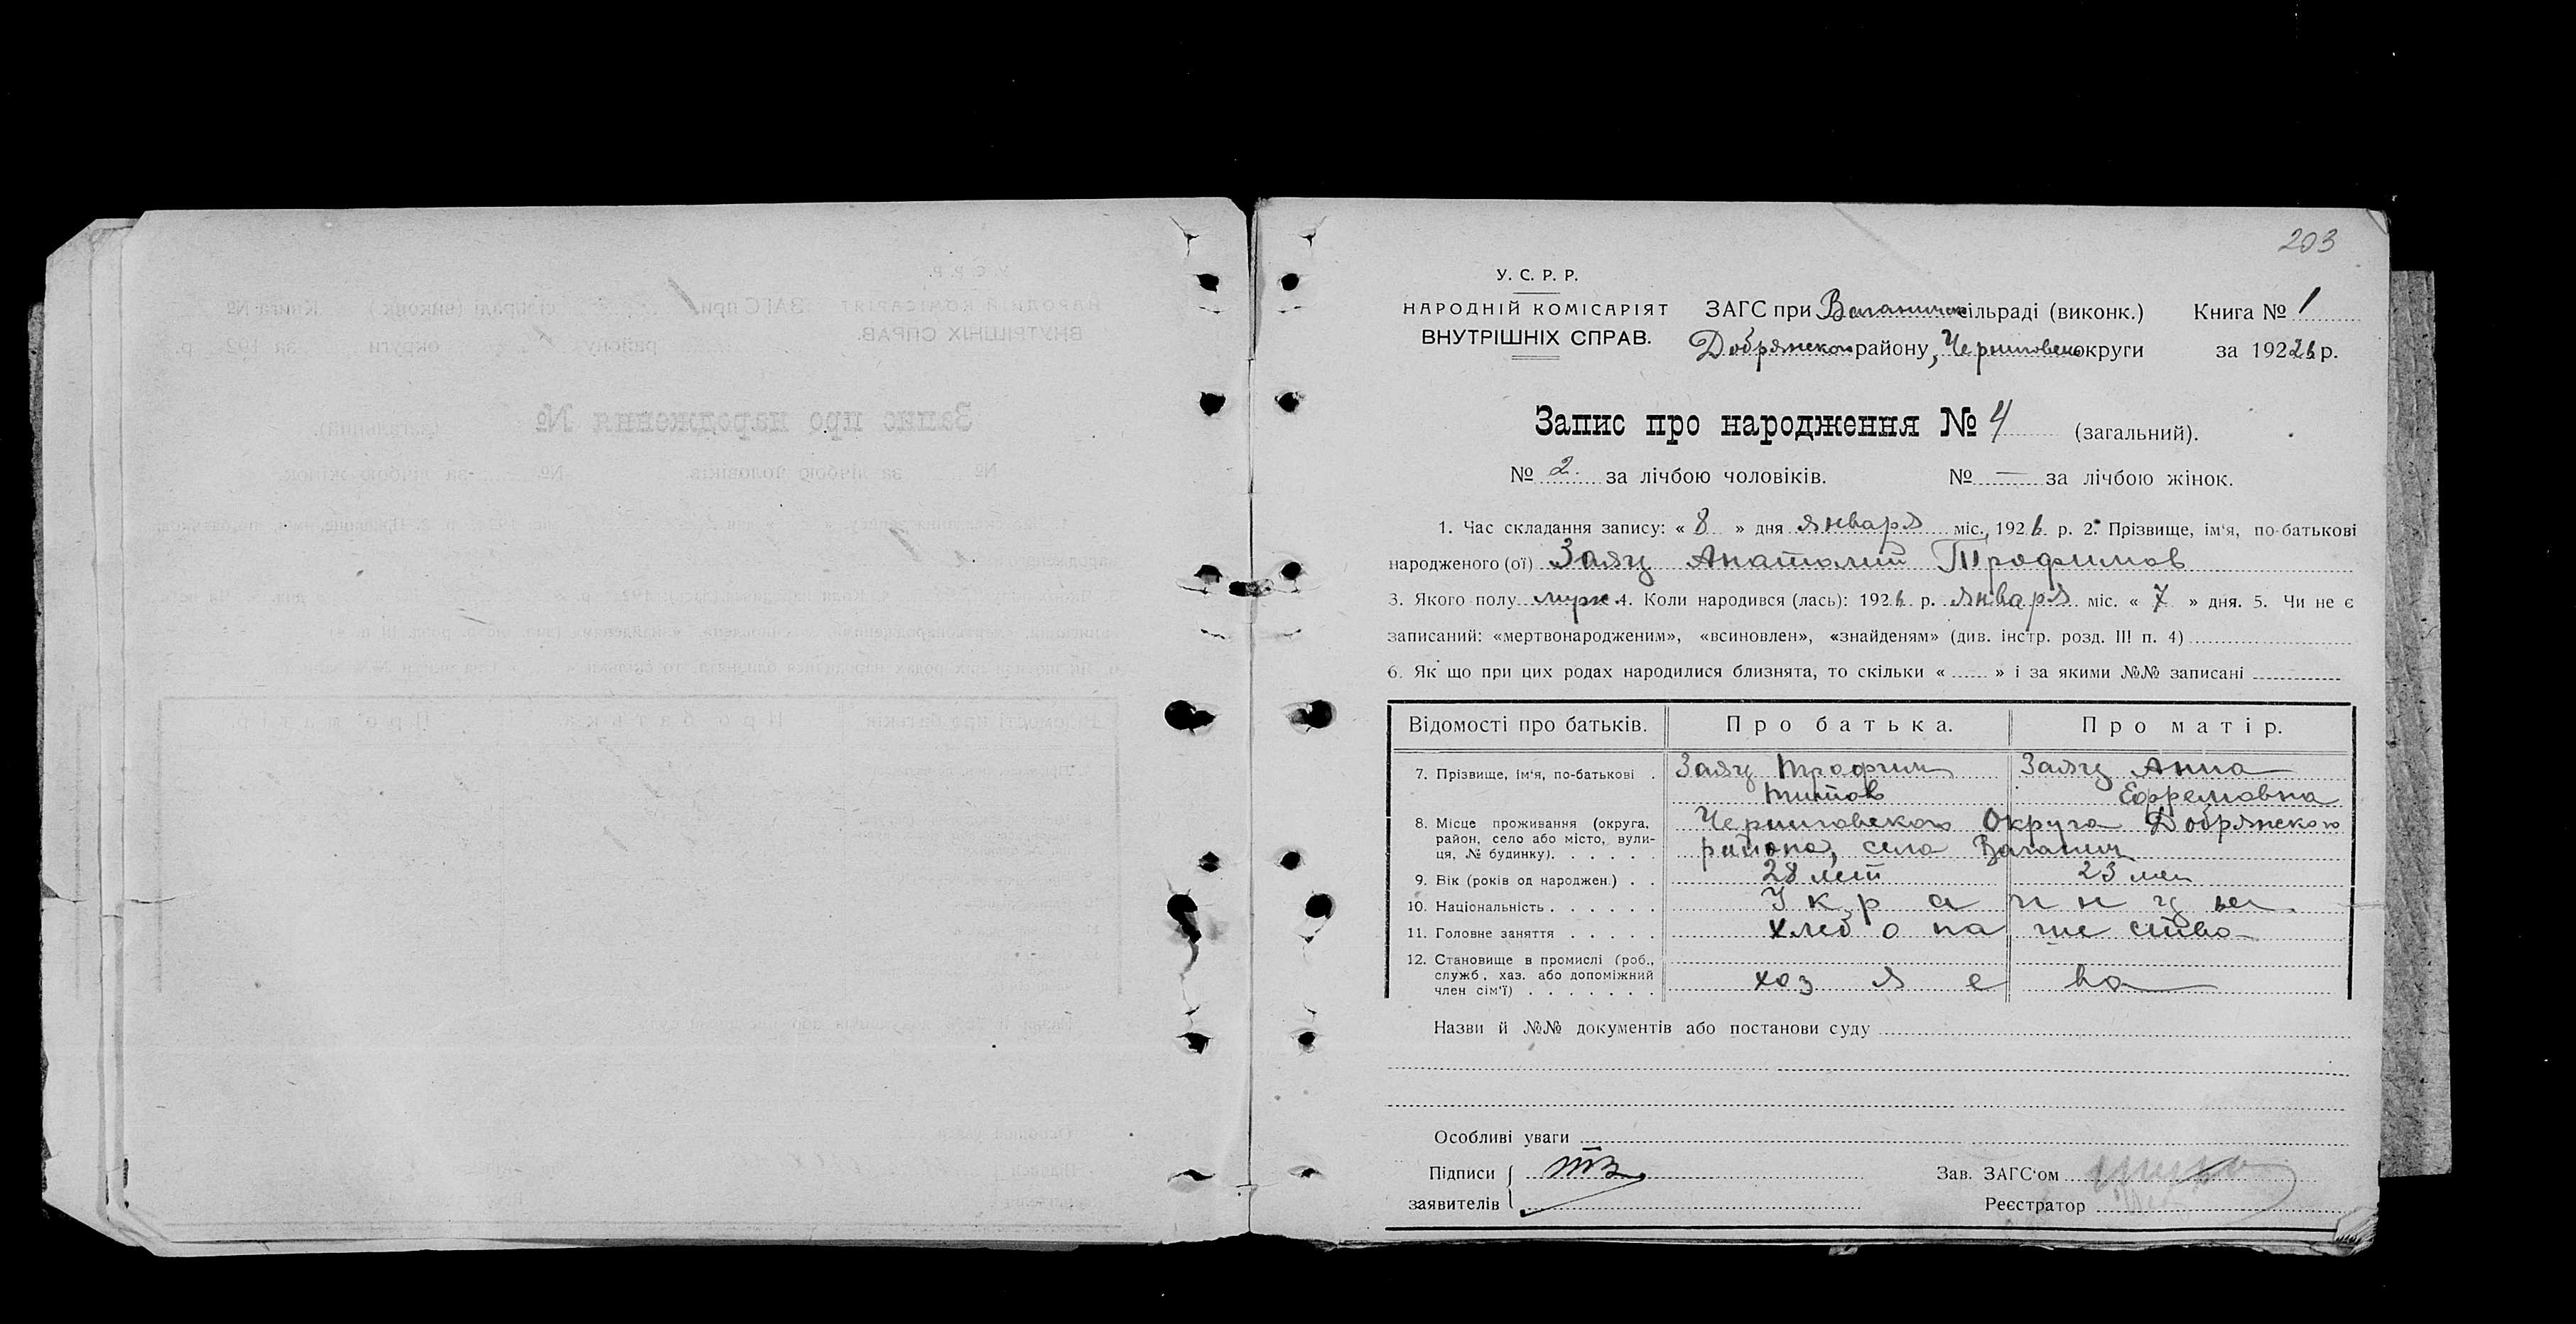 203
У. С. Р. Р.
НАРОДНІЙ КОМІСАРІЯТ
ВНУТРІШНІХ СПРАВ.
ЗАГС при Ваганичск сільраді (виконк.) Книга № 1
Добрянского району, Черниговско округи за 1926 р.
Запис про народження № 4 (загальний).
№ 2. за лічбою чоловіків. № — за лічбою жінок.
1. Час складання запису: « 8 » дня января міс., 1926 р. 2. Прізвище, ім'я, по-батькові
народженого (ої) Заяц Анатолий Трофимов
3. Якого полу муж 4. Коли народився (лась): 1926 р. января міс. « 7 » дня. 5. Чи не є
записаний: «мертвонародженим», «всиновлен», «знайденям» (див. інстр. розд. III п. 4)
6. Як що при цих родах народилися близнята, то скільки « » і за якими №№ записані
Відомості про батьків. Про батька. Про матір.
7. Прізвище, ім'я, по-батькові . Заяц Трофим Заяц Анна
Титов Ефремовна
8. Місце проживання (округа, район, село або місто, вулиця, № будинку). Черниговского Округа Добрянского
района, села Ваганич
9. Вік (років од народжен.) . . 28 лет 23 лет
10. Національність . . . . . . Украинцы
11. Головне заняття . . . . . хлебопашество
12. Становище в промислі (роб., служб, хаз. або допоміжний член сім'ї) . . . . . . . хозяева
Назви й №№ документів або постанови суду
Особливі уваги
Підписи заявителів ТЗ
Зав. ЗАГС'ом
Реєстратор